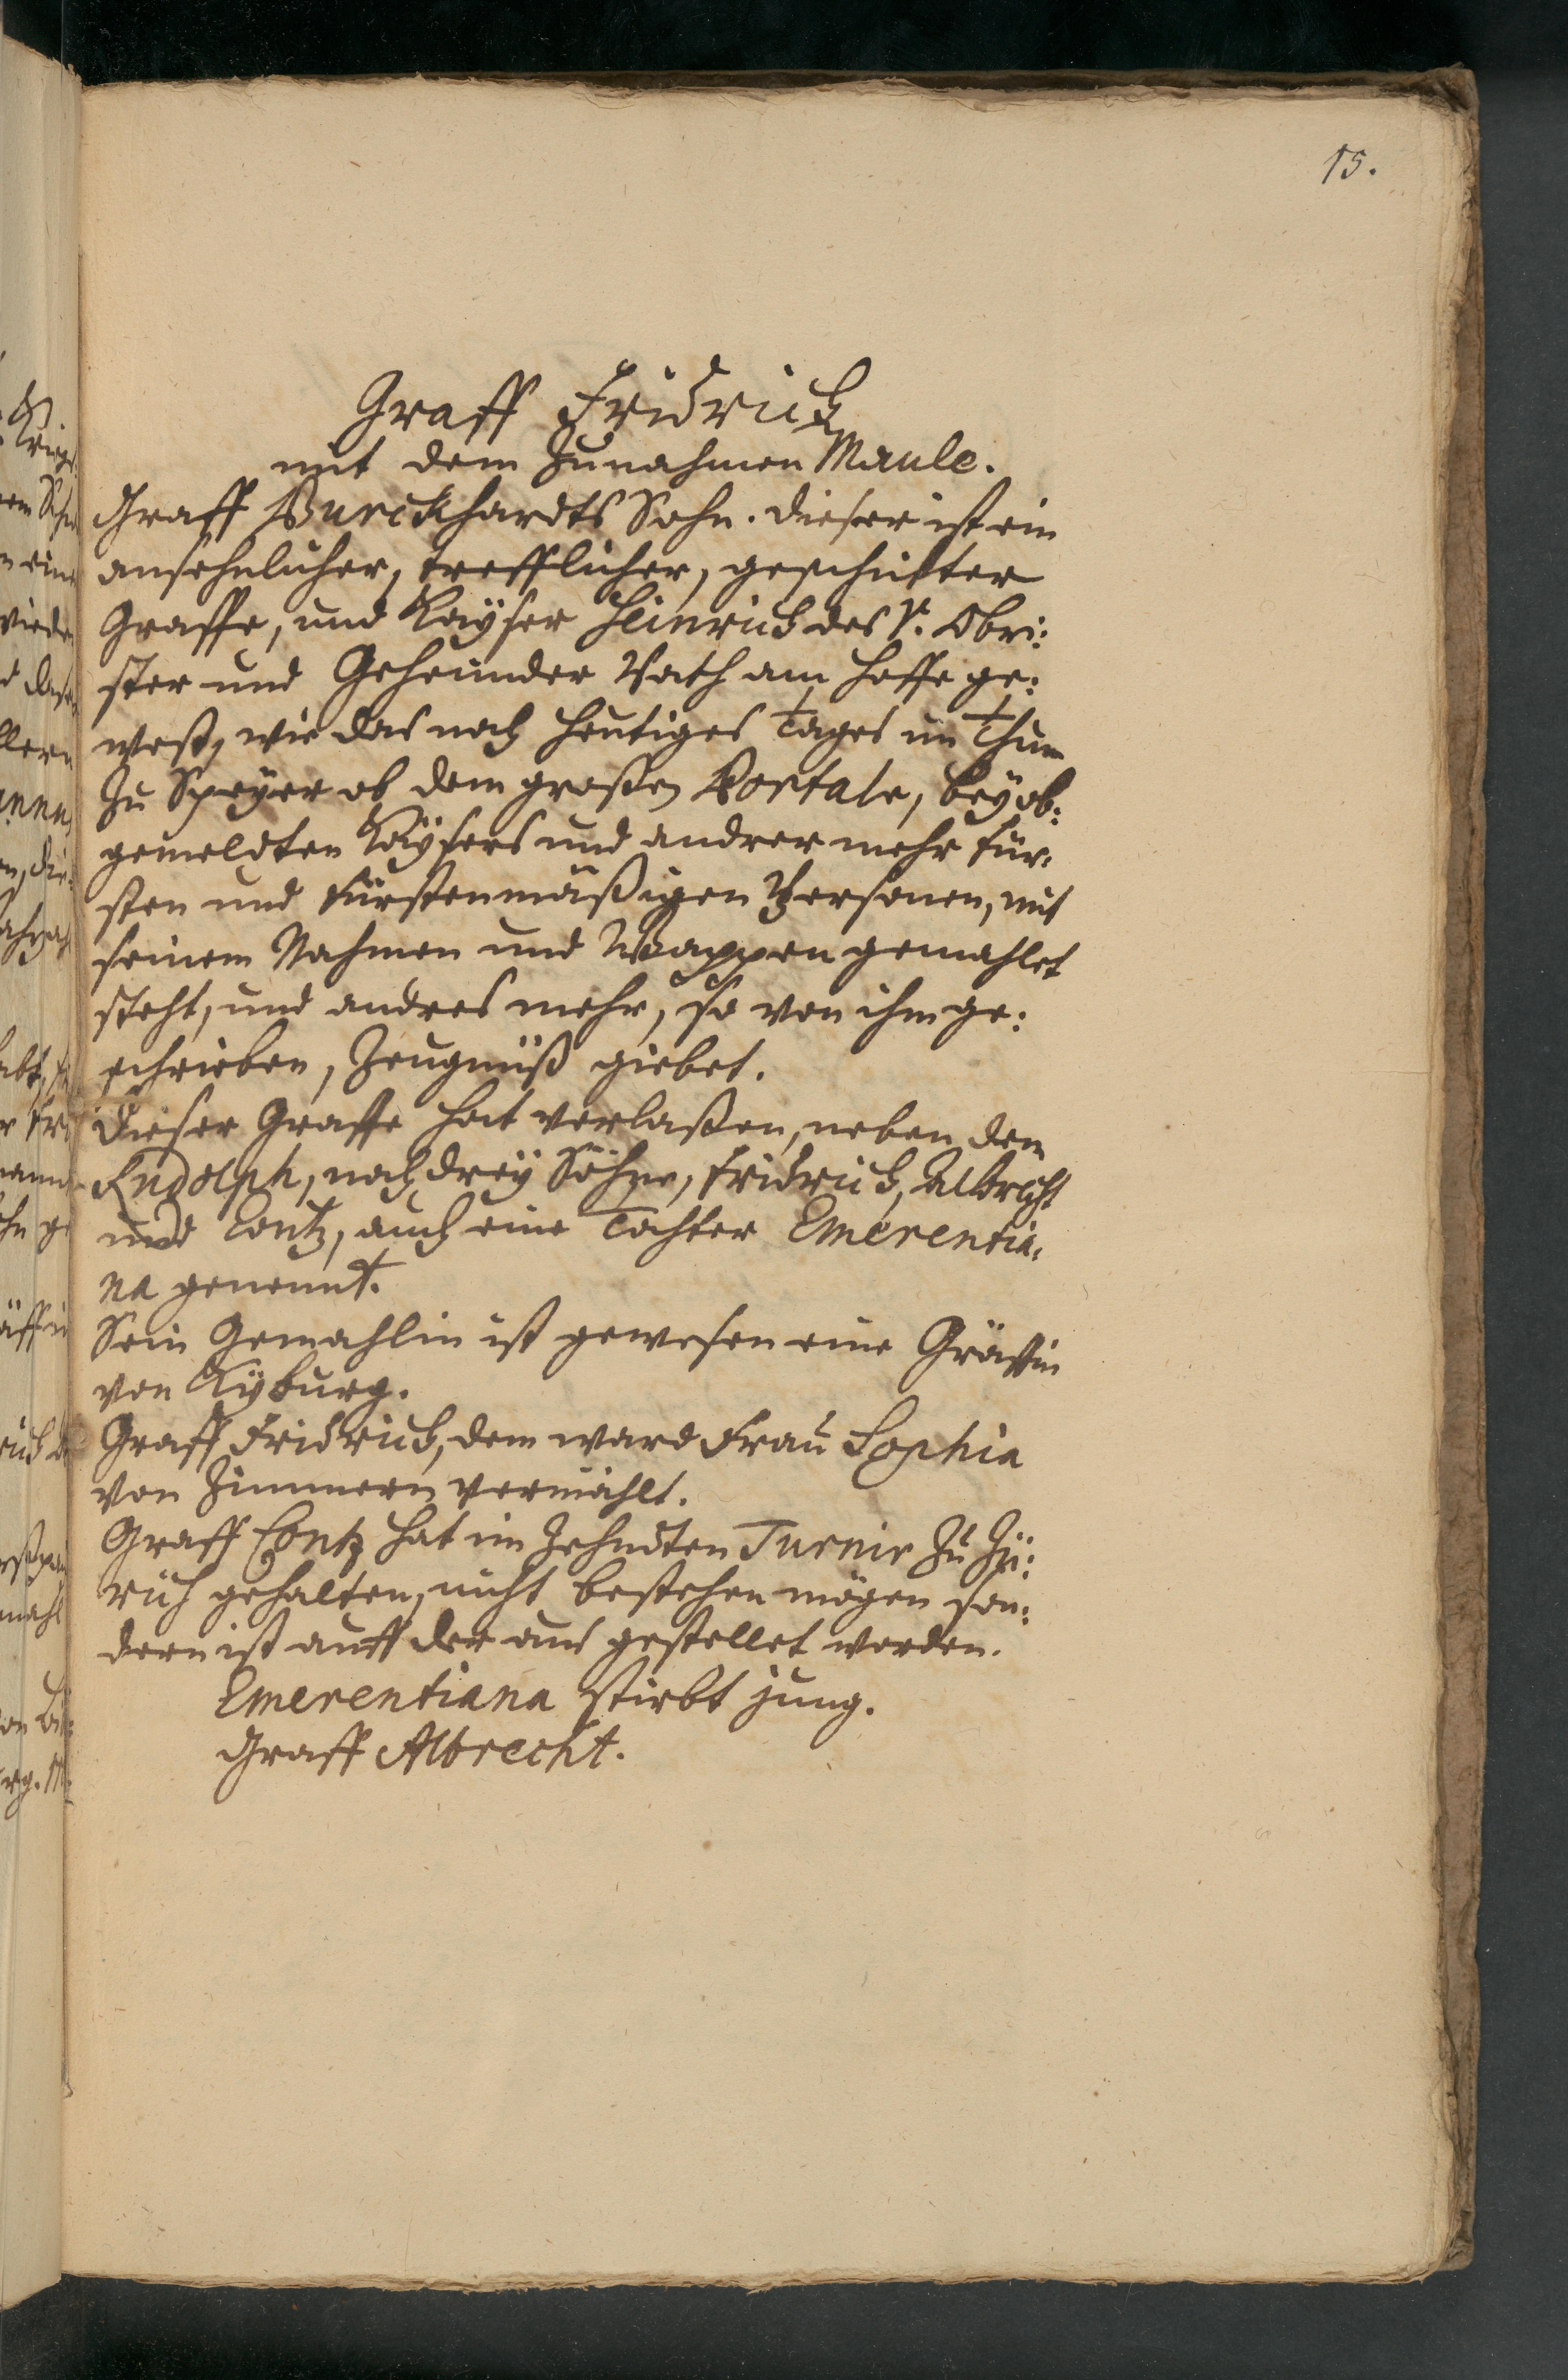 15.
Graff Fridrich
mit dem Zunahmen Maule.
Graff Burckhardts Sohn. dieser ist ein
ansehnlicher, trefflicher, geschickter
Graffe, und Kayser Heinrich des V. Obri:
ster und Geheimder Rath am Hoffe ge:
west, wie das noch heutiges Tages im Thum
zu Speyer ob dem großen Portale, bey ob:
gemeldten Kaysers und andrer mehr Für:
sten und Fürstenmäßigen Personen, mit
seinem Nahmen und Wappen gemahlet
steht, und andres mehr, so von ihm ge:
schrieben, Zeugnüß giebet.
Dieser Graffe hat verlaßen, neben dem
Rudolph, noch drey Söhne, Fridrich, Albrecht
und Contz, auch eine Tochter Emerentia:
na genennt.
Sein Gemahlin ist gewesen eine Gräffin
von Kyburg.
Graff Fridrich, dem ward Frau Sophia
von Zimmern vermählt.
Graff Contz hat im Zehndten Turnir zu Zü:
rich gehalten, nicht bestehen mögen son:
dern ist auff der aus gestellet worden.
Emerentiana stirbt jung.
Graff Albrecht.